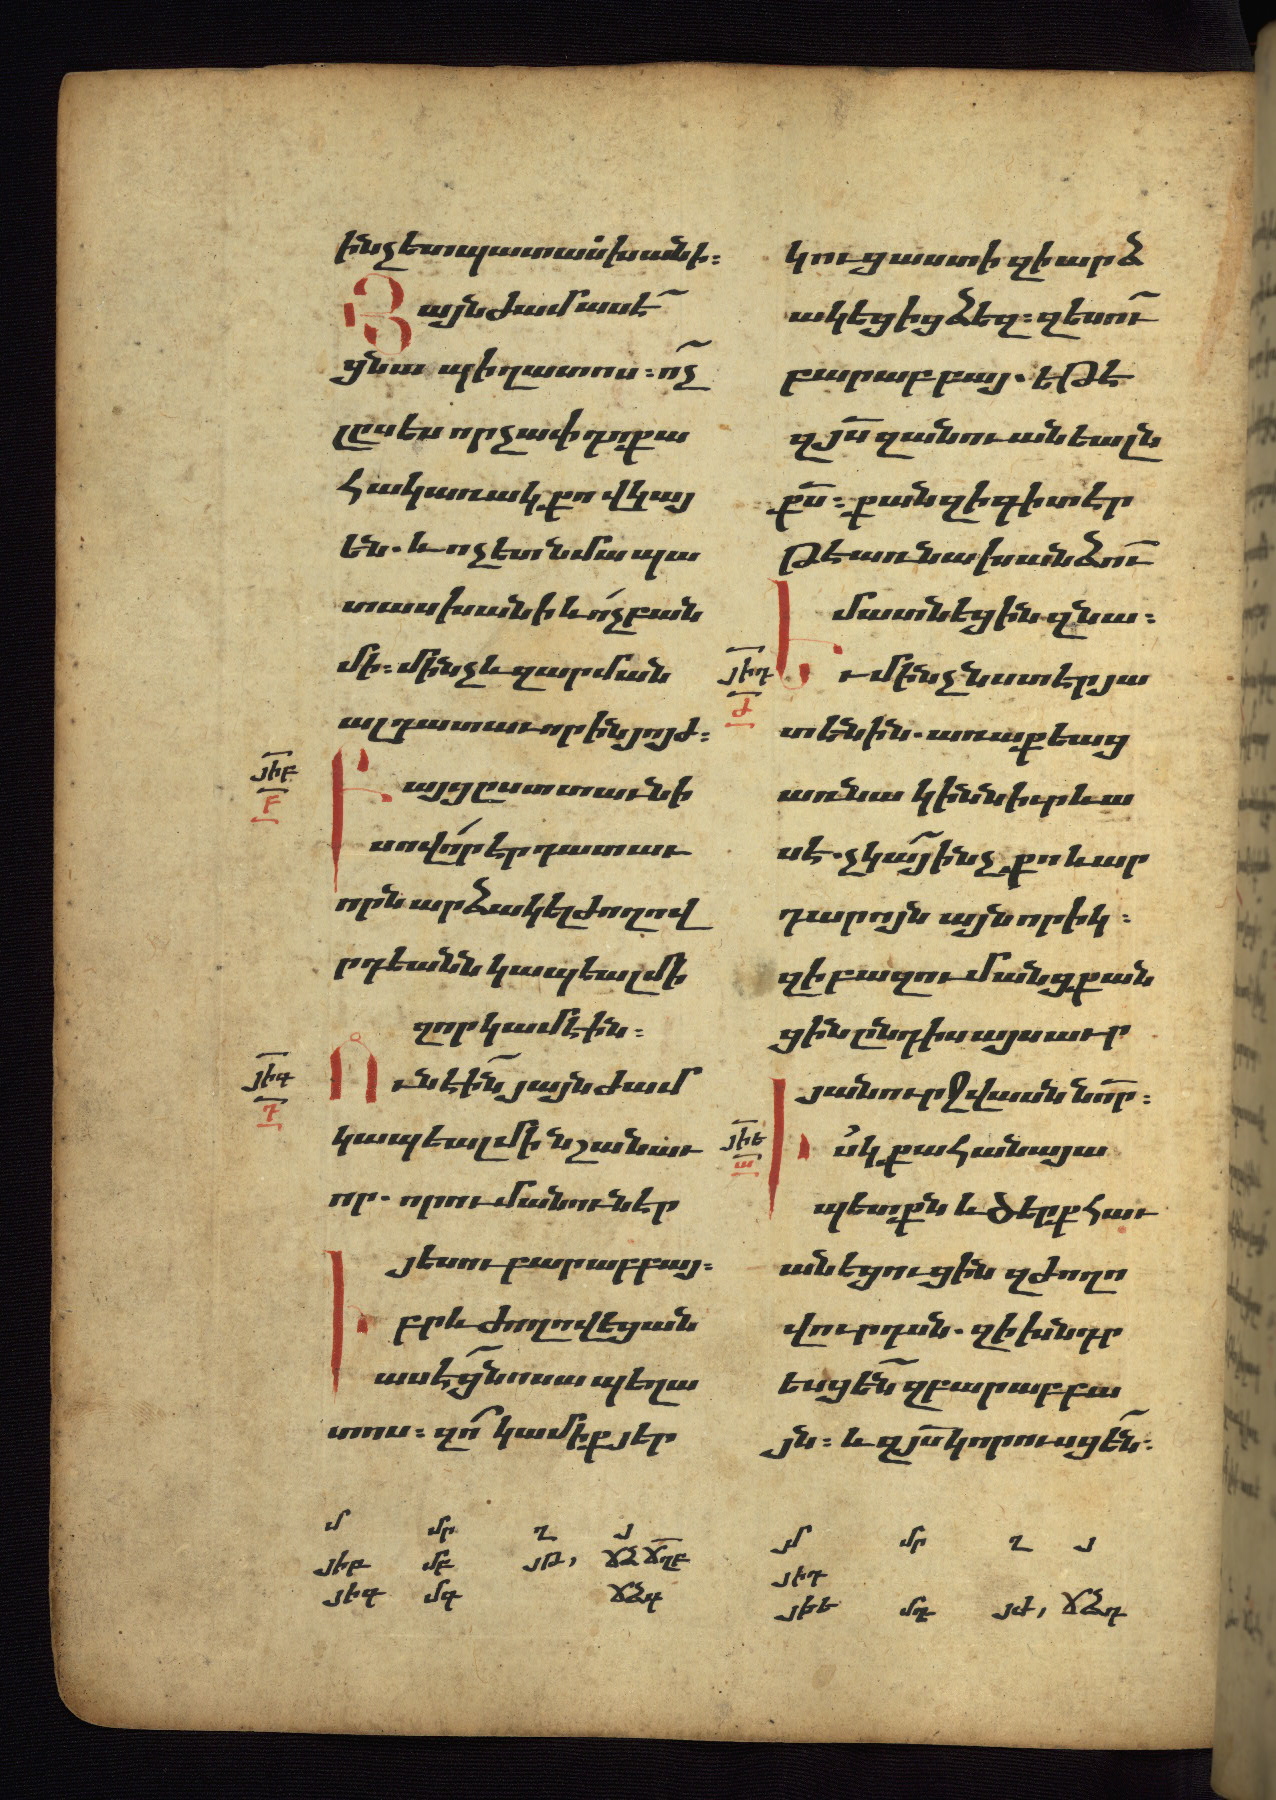 ինչ ետ պատասխանի։
Յայնժամ ասէ՞
ցնա պիղատոս։ ո՞չ
լըսես որչափ դոքա
հակառակ քո վկայ
են. և ոչ ետ նմա պա
տասխանի և ոչ բան
մի։ մինչև զարման
ալ դատաւորին յոյժ։
յիբ
բ
Բայց ըստ տաւնի
սովոր էր դատաւ
որն արձակել ժողով
րդեանն կապեալ մի
զոր կամէին։
յիգ
դ
Ունէին յայնժամ
կապեալ մի նշանաւ
որ. որում անուն էր
յեսու բարաբբայ։
Իբրև ժողովեցան
ասէ ցնոսա պեղա
տոս։ զո՞ կամիք յեր
կուց աստի զի արձ
ակեցից ձեզ։ զեսու՞
բարաբբայ. եթե
զյս զանուանեալն
քս։ քանզի գիտէր
թե առ նախանձու
մատնեցին զնա։
յիդ
ժ
Եւ մինչ նստէր յա
տենին. առաքեաց
առ նա կին նիւր և ա
սէ. չկայ ինչ քո և ար
դարոյն այնորիկ։
զի բազում անցք ան
ցին ընդ իս այսաւր
յանուրջ վասն նոր։
յիե
ա
Իսկ քահանայա
պետքն և ծերք հաւ
անեցուցին զժողո
վուրդսն. զի խնդր
եսցեն զբարաբբա
յն։ և զյս կորուսցեն։
մ մր ղ յ
յիբ մբ յթ, ՃՁ ՃՂԲ
յիգ մգ ՃՁգ
մ մր ղ յ
յիդ
յիե մդ յժ, ՃՁդ